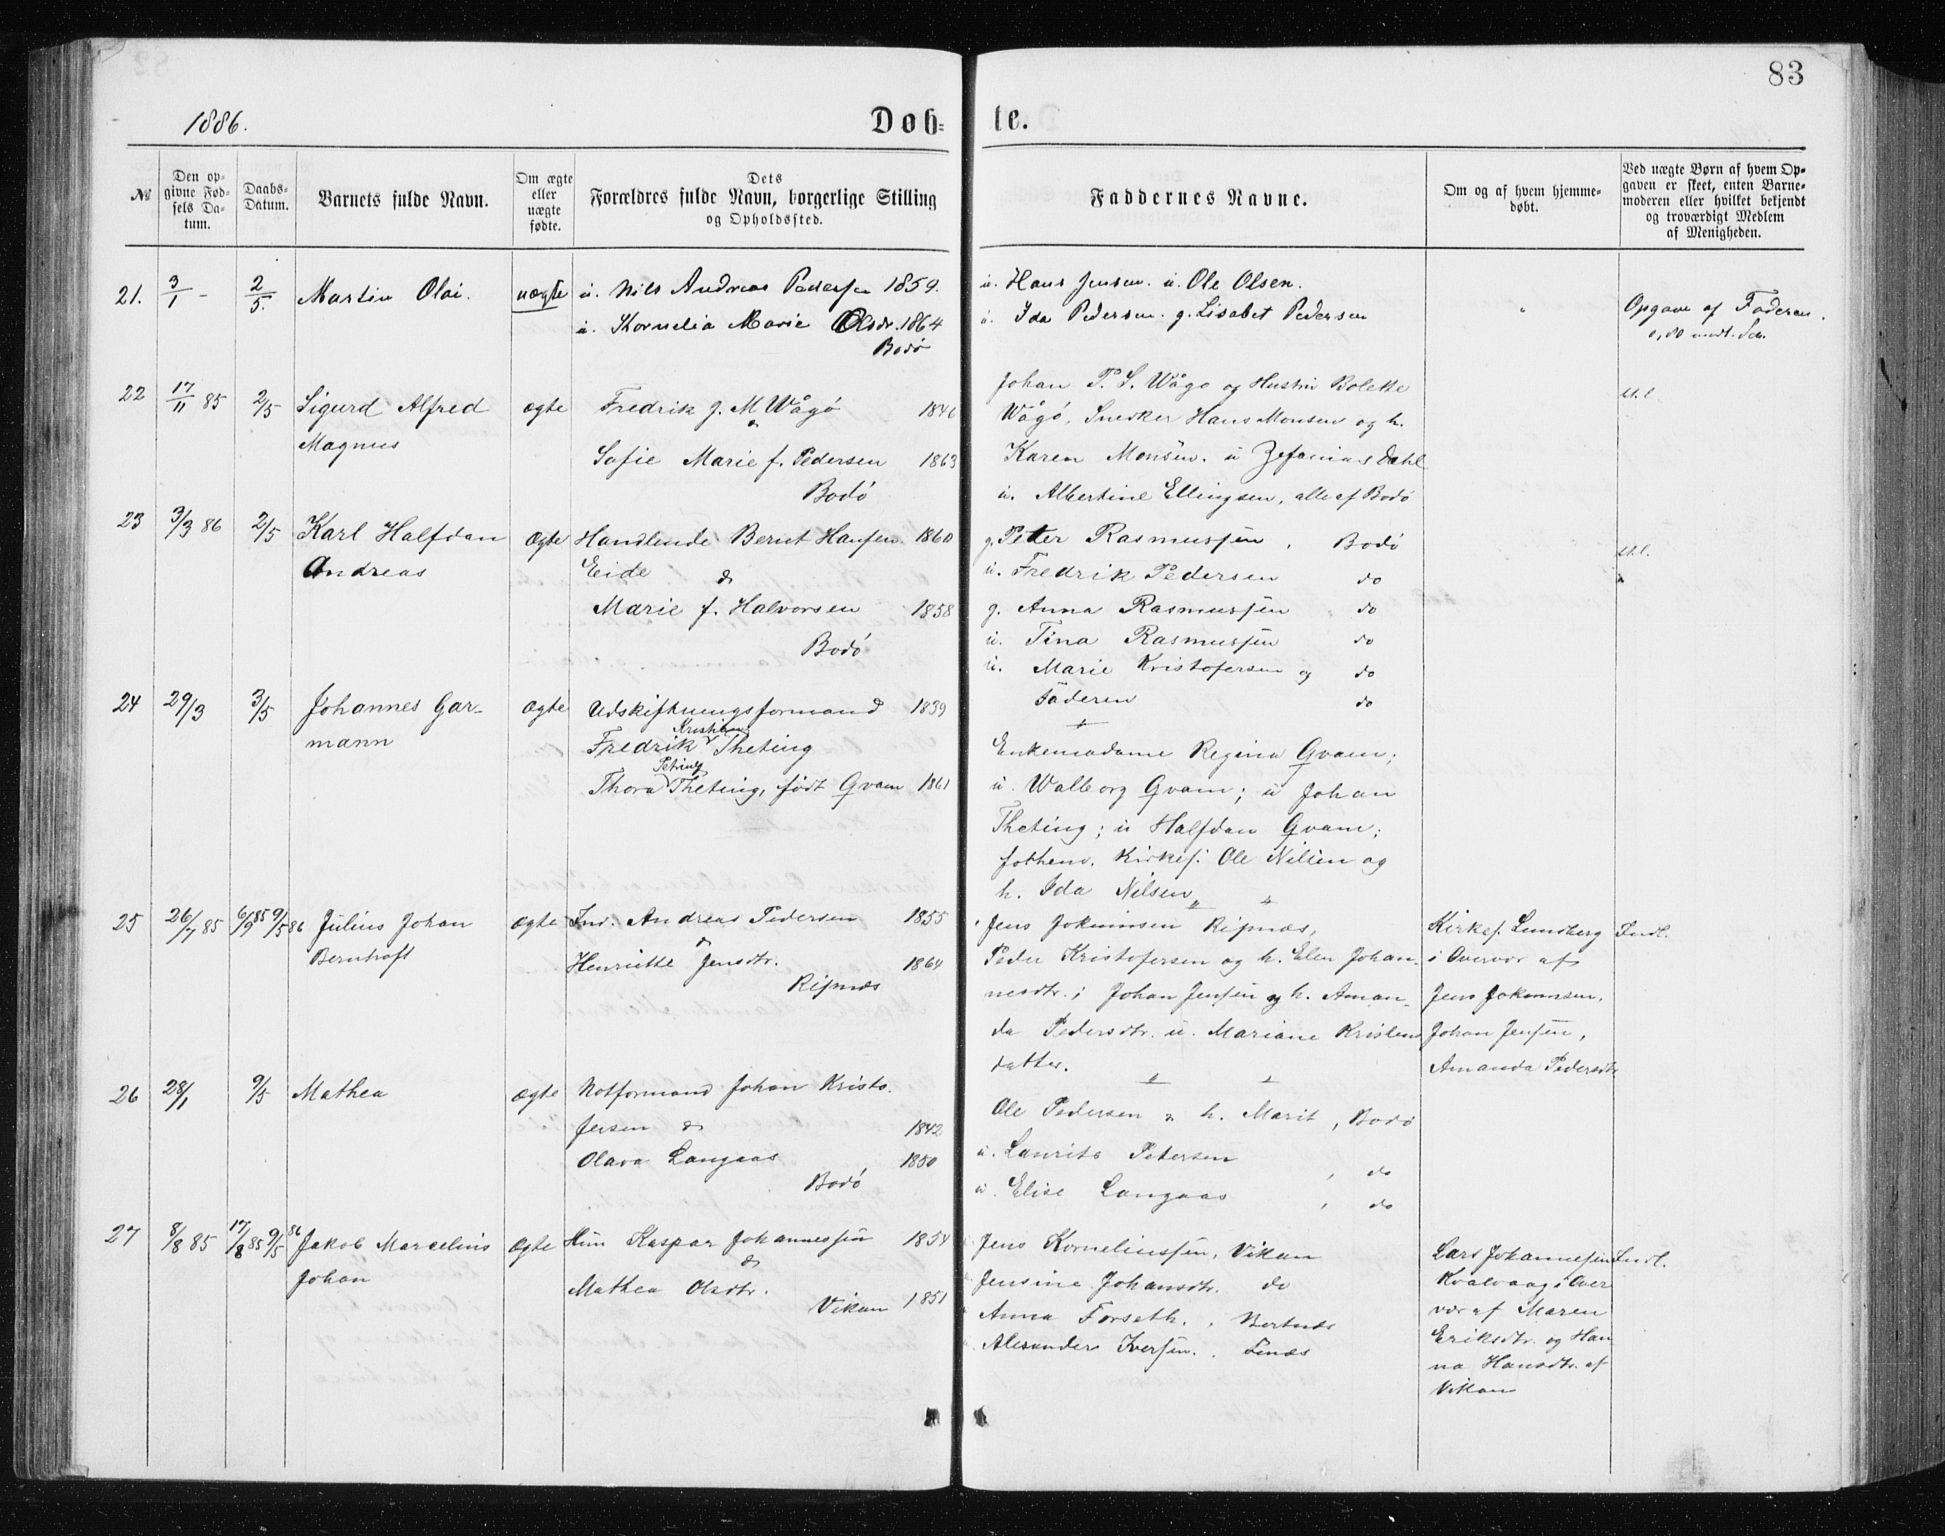 83
1886.
Døb=
te.
№
Den op-
givne Fød-
sels Da-
tum.
Daabs-
Datum.
Barnets fulde Navn.
Om ægte
eller
uægte
fødte.
Dets
Forældres fulde Navn, borgerlige Stilling
og Opholdssted.
Faddernes Navne.
Om og af hvem hjemme-
døbt.
Ved uægte Børn af hvem Op-
gaven er skeet, enten Barne-
moderen eller hvilket bekjendt
og troværdigt Medlem
af Menigheden.
21.
3/1 -
2/5.
Martin Olai.
uægte
u. Nils Andreas Pedersen 1859.
u. Kornelia Marie Olsdr. 1864
Bodø
u. Hans Jensen. u. Ole Olsen.
u. Ida Pedersen. g. Lisabet Pedersen
Opgave af Faderen.
22
17/11 85
2/5
Sigurd Alfred
Magnus
ægte
Fredrik J. M Wågø 1846
&
Sofie Marie f. Pedersen 1863
Bodø
Johan P. S. Wågø og Hustru Bolette
Wågø, Snedker Hans Monsen og h.
Karen Monsen. u Zefanias Dahl
u. Albertine Ellingsen, alle af Bodø
23
3/3 86
2/5
Karl Halfdan
Andreas
Ægte
Handlende Bernt Hansen 1860
Eide &
Marie f. Halvorsen 1858
Bodø
g. Peter Rasmussen, Bodø
u. Fredrik Pedersen do
g. Anna Rasmussen do
u. Tina Rasmussen do
u. Marie Kristofersen og do
Faderen do
24
29/3
3/5
Johannes Gar-
mann
Ægte
Udskiftningsformand 1839
Kristian
Fredrik Theting
Petrine
Thora Theting, født Qvam 1861
Enkemadame Regina Qvam;
u. Walborg Qvam; u Johan
Theting; u Halfdan Qvam;
Kirkes. Ole Nilsen og
h. Ida Nilsen
25
26/7 85
6/9 85 9/5 86
Julius Johan
Bernhoft
Ægte
Ind. Andreas Pedersen 1855
&
Henriette Jensdtr. 1864
Ripnæs
Jens Jokumsen Ripnæs,
Peder Kristofersen og h. Elen Johan-
nesdtr.; Johan Jensen og h. Aman-
da Pedersdtr. u. Mariane Kristens
datter.
Kirkes. Lundberg
i Overvær af
Jens Jokumsen,
Johan Jensen,
Amanda Pedersdtr
Indl.
26
28/1
9/5
Mathea
Ægte
Notformand Johan Kristo-
fersen & 1842
Olava Langaas 1850
Bodø
Ole Pedersen & h. Marit, Bodø
u. Laurits Petersen, do
u. Elise Langaas, do
27
8/8 85
17/8 85 9/5 86
Jakob Marcelius
Johan
Ægte
Kaspar Johannessen 1854
&
Mathea Olsdtr.
Vikan 1851
Jens Korneliussen, Vikan
Jensine Johansdtr. do
Anna Forseth., Bertnæs
Alexander Iversen.
Lars Johannesen
Kvalvaag i Over
vær af Maren
Eriksdtr. og Han
na Hansdtr. af
Vikan
Indl.